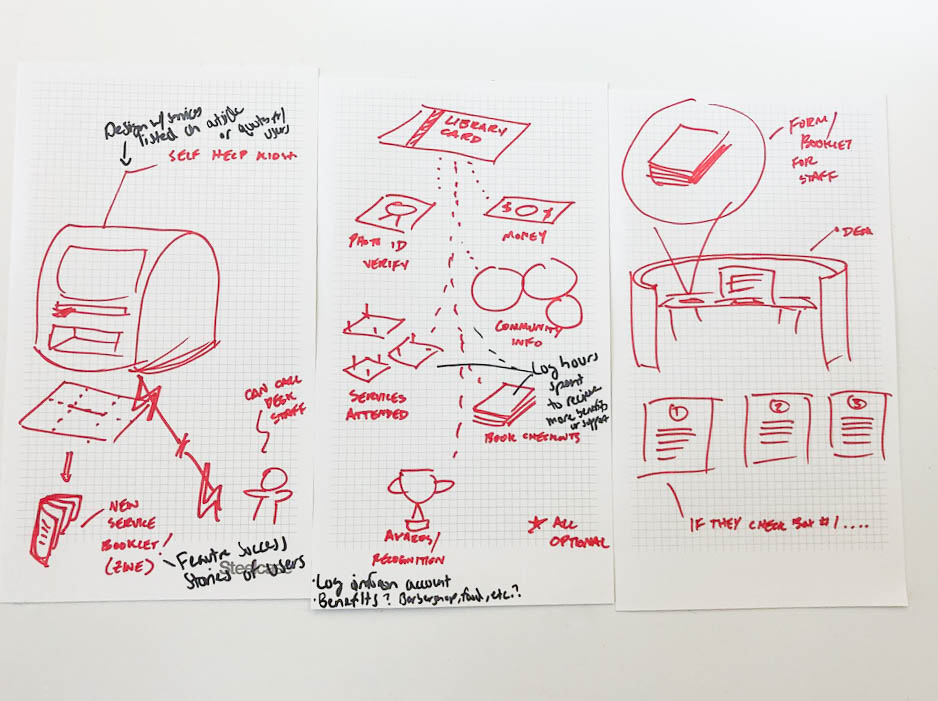 Design w/ services
listed on outside
or quotes of/
users
SELF HELP KIOSK
CAN CALL
DESK
STAFF
NEW
SERVICE
BOOKLET/
(ZINE)
Feature Success
Stories of users
Steelcase
LIBRARY
CARD
PHOTO ID
VERIFY
$ $
MONEY
COMMUNITY
INFO
SERVICES
ATTENDED
Log hours
spent
to recieve
more benefits
or support
BOOK CHECKOUTS
AWARDS/
RECOGNITION
* ALL
OPTIONAL
· Log info on account
· Benefits? Barbershop, food, etc.?
FORM/
BOOKLET
FOR
STAFF
DESK
1
2
3
IF THEY CHECK BOX #1....